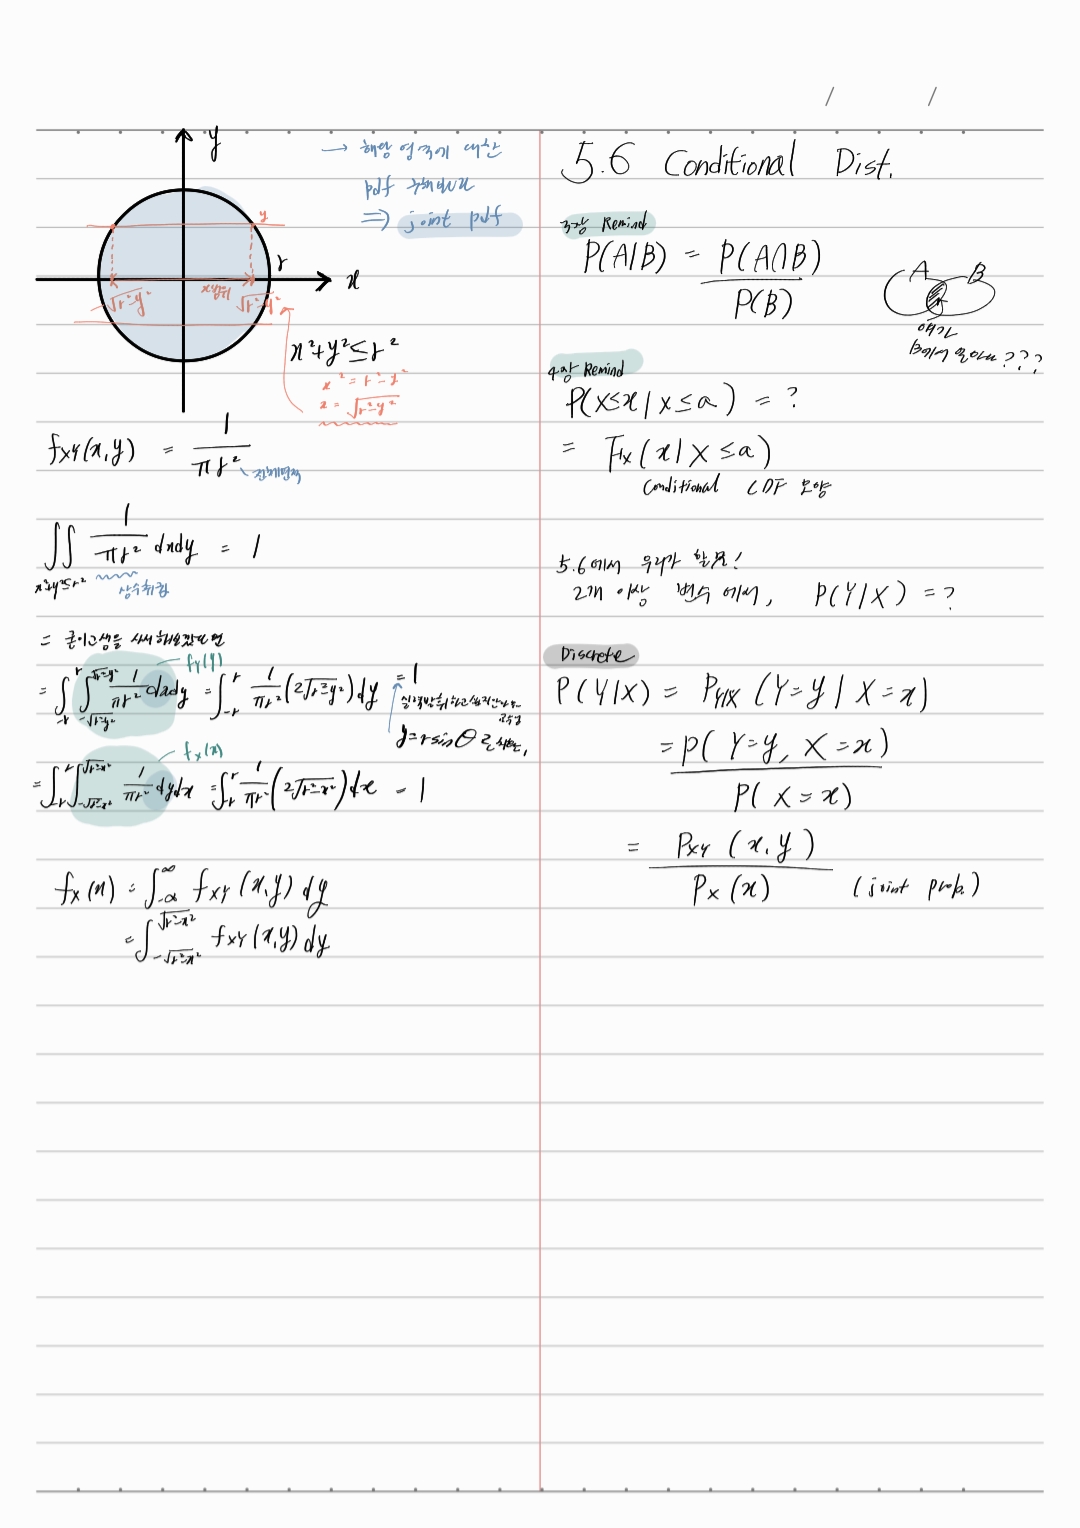 / /
y
→ 해당 영역에 대한
pdf 구해보자
⇒ joint pdf
y
r
x
x범위
-√r²-y²
√r²-y²
x²+y²≤r²
x² = r²-y²
x = √r²-y²
fxy(x,y) = 1/πr²
전체면적
∬ 1/πr² dxdy = 1
x²+y²≤r²
상수취급
= 굳이 고생을 사서 해보겠다면
fy(y)
= ∫_-r^r ∫_-√r²-y²^√r²-y² 1/πr² dxdy = ∫_-r^r 1/πr² (2√r²-y²) dy = 1
y=rsinθ 로 치환,
fx(x)
= ∫_-r^r ∫_-√r²-x²^√r²-x² 1/πr² dydx = ∫_-r^r 1/πr² (2√r²-x²) dx = 1
fx(x) = ∫_-∞^∞ fxy(x,y) dy
= ∫_-√r²-x²^√r²-x² fxy(x,y) dy
5.6 Conditional Dist.
3장 Remind
P(A|B) = P(A∩B)/P(B)
A B
여기가
B에서 ???
4장 Remind
P(X≤x | X≤a) = ?
= Fx(x | X≤a)
Conditional CDF 모양
5.6에서 우리가 할 것!
2개 이상 변수에서, P(Y|X) = ?
Discrete
P(Y|X) = P_Y|X (Y=y | X=x)
= P(Y=y, X=x)/P(X=x)
= Pxy(x,y)/Px(x) (joint prob.)